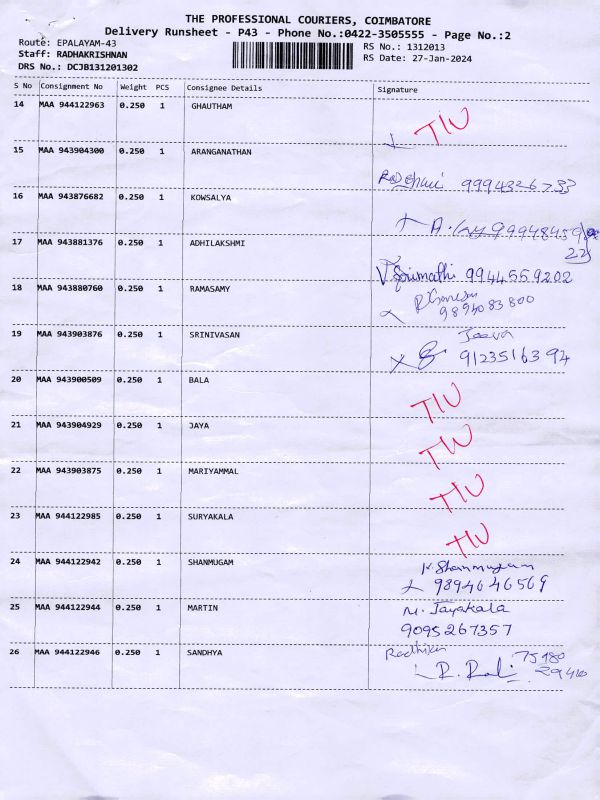 THE PROFESSIONAL COURIERS, COIMBATORE
Delivery Runsheet - P43 - Phone No.:0422-3505555 - Page No.:2
Route: EPALAYAM-43
RS No.: 1312013
Staff: RADHAKRISHNAN
RS Date: 27-Jan-2024
DRS No.: DCJB131201302
S No Consignment No Weight PCS Consignee Details Signature
14 MAA 944122963 0.250 1 GHAUTHAM
TIU
15 MAA 943904300 0.250 1 ARANGANATHAN
9994326733
16 MAA 943876682 0.250 1 KOWSALYA
17 MAA 943881376 0.250 1 ADHILAKSHMI
9944559202
18 MAA 943880760 0.250 1 RAMASAMY
9894083800
19 MAA 943903876 0.250 1 SRINIVASAN
Jeeva
9123516394
20 MAA 943900509 0.250 1 BALA
TIU
21 MAA 943904929 0.250 1 JAYA
TIU
22 MAA 943903875 0.250 1 MARIYAMMAL
TIU
23 MAA 944122985 0.250 1 SURYAKALA
TIU
24 MAA 944122942 0.250 1 SHANMUGAM
Shanmugam
9894646569
25 MAA 944122944 0.250 1 MARTIN
M. Jayakala
9095267357
26 MAA 944122946 0.250 1 SANDHYA